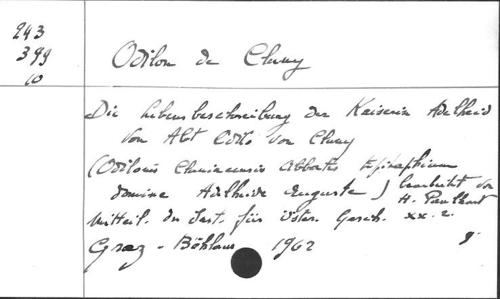 243
399
10
Odilon de Cluny
Die Lebensbeschreibung der Kaiserin Adelheid
von Abt Odilo von Cluny
(Odilonis Cluniacensis Abbatis Epitaphium
domine Adelheide Auguste) bearbeitet von
H. Paulhart
Mitteil. der Inst. für österr. Gesch. XX. 2.
Graz - Böhlaus 1962